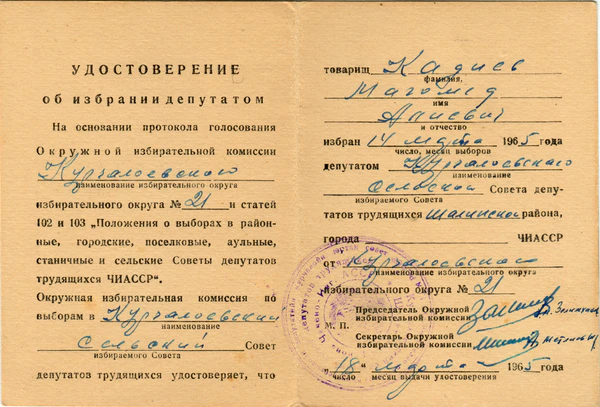 УДОСТОВЕРЕНИЕ
об избрании депутатом
На основании протокола голосования
Окружной избирательной комиссии
Курчалоевского
наименование избирательного округа
избирательного округа № 21 и статей
102 и 103 „Положения о выборах в район-
ные, городские, поселковые, аульные,
станичные и сельские Советы депутатов
трудящихся ЧИАССР“.
Окружная избирательная комиссия по
выборам в Курчалоевский
наименование
Сельский Совет
избираемого Совета
депутатов трудящихся удостоверяет, что
товарищ Кадиев
фамилия,
Магомед
имя
Алиевич
и отчество
избран 14 марта 1965 года
число, месяц выборов
депутатом Курчалоевского
наименование
Сельской Совета депу-
избираемого Совета
татов трудящихся Шалинской района,
города ЧИАССР
от Курчалоевского
наименование избирательного округа
избирательного округа № 21
Председатель Окружной
избирательной комиссии
М. П.
Секретарь Окружной
избирательной комиссии
"18" марта 1965 года
число месяц выдачи удостоверения